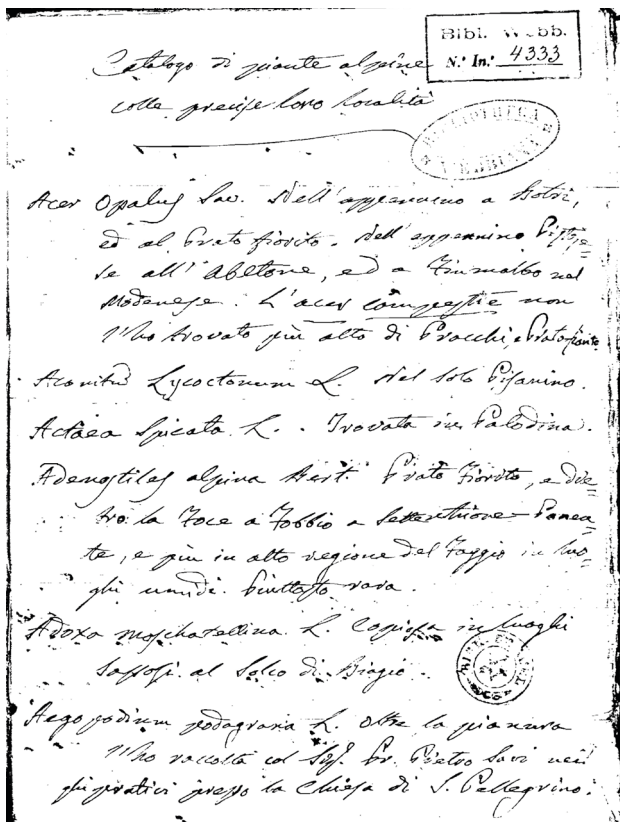 Bibl. Webb.
N.° In.° 4333
Catalogo di piante alpine
colle precise loro località
BIBLIOTHECA WEBBIANA
Acer Opalus Sav. Nell'appennino a Botri,
ed al Prato fiorito. Nell'appennino Pistoje=
se all'Abetone, ed a Fiumalbo nel
Modenese. L'acer campestre non
l'ho trovato più alto di Pracchi, e Prato fiorito
Aconitu Lycoctonum L. Nel solo Pisanino.
Actaea Spicata L. . Trovata in Palodina.
Adenostiles alpina Bert. Prato Fiorito, e die=
tro la Foce a Fobbio a Settentrione
te, e più in alto regione del Faggio in luo=
ghi umidi. Piuttosto rara.
Adoxa moschatellina L. Copiosa in luoghi
sassosi al Solco di Biagio.
Aegopodium podagraria L. Oltre la pianura
l'ho raccolta col Sig. Pr. Pietro Savi nei
prativi presso la Chiesa di S. Pellegrino.